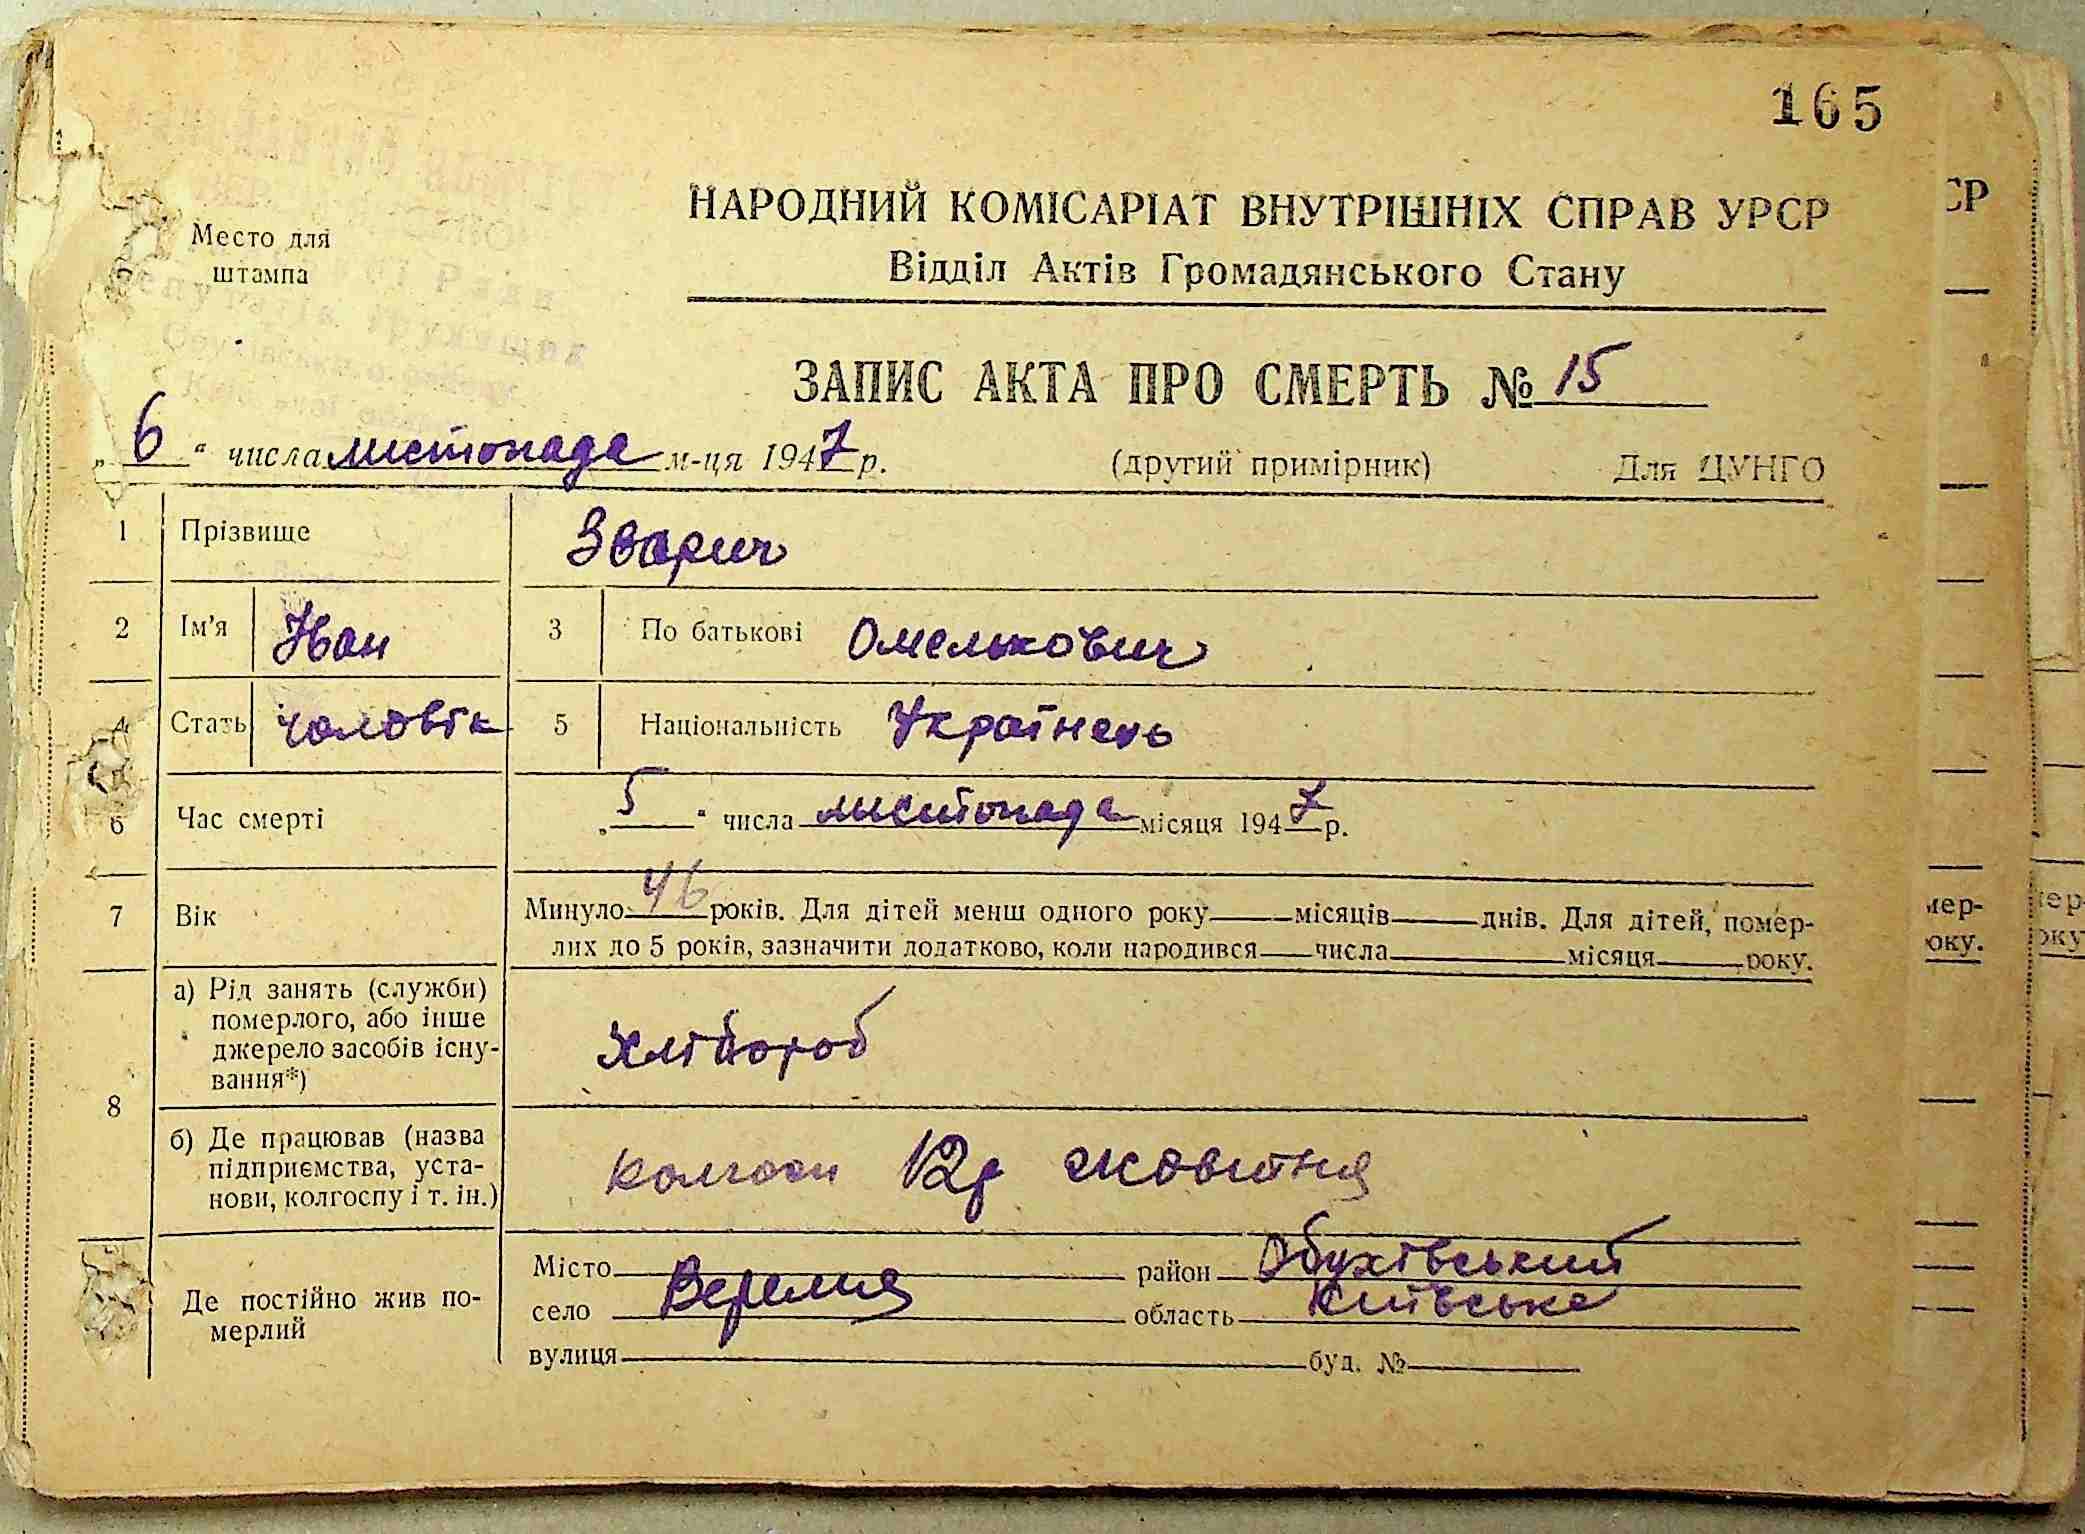 165
Место для
штампа
НАРОДНИЙ КОМІСАРІАТ ВНУТРІШНІХ СПРАВ УРСР
Відділ Актів Громадянського Стану
ЗАПИС АКТА ПРО СМЕРТЬ № 15
„ 6 “ числа листопада м-ця 1947 р.
(другий примірник) Для ЦУНГО
1 Прізвище Зварич
2 Ім'я Іван 3 По батькові Омелькович
4 Стать чоловік 5 Національність Українець
6 Час смерті „ 5 “ числа листопада місяця 1947 р.
7 Вік Минуло 46 років. Для дітей менш одного року місяців днів. Для дітей, помер-
лих до 5 років, зазначити додатково, коли народився числа місяця року.
8 а) Рід занять (служби)
померлого, або інше
джерело засобів існу-
вання*)
хлібороб
б) Де працював (назва
підприємства, уста-
нови, колгоспу і т. ін.)
колгосп 12р жовтня
Де постійно жив по-
мерлий
Місто район Обухівський
село Веремя область Київське
вулиця буд. №
СР
мер-
оку.